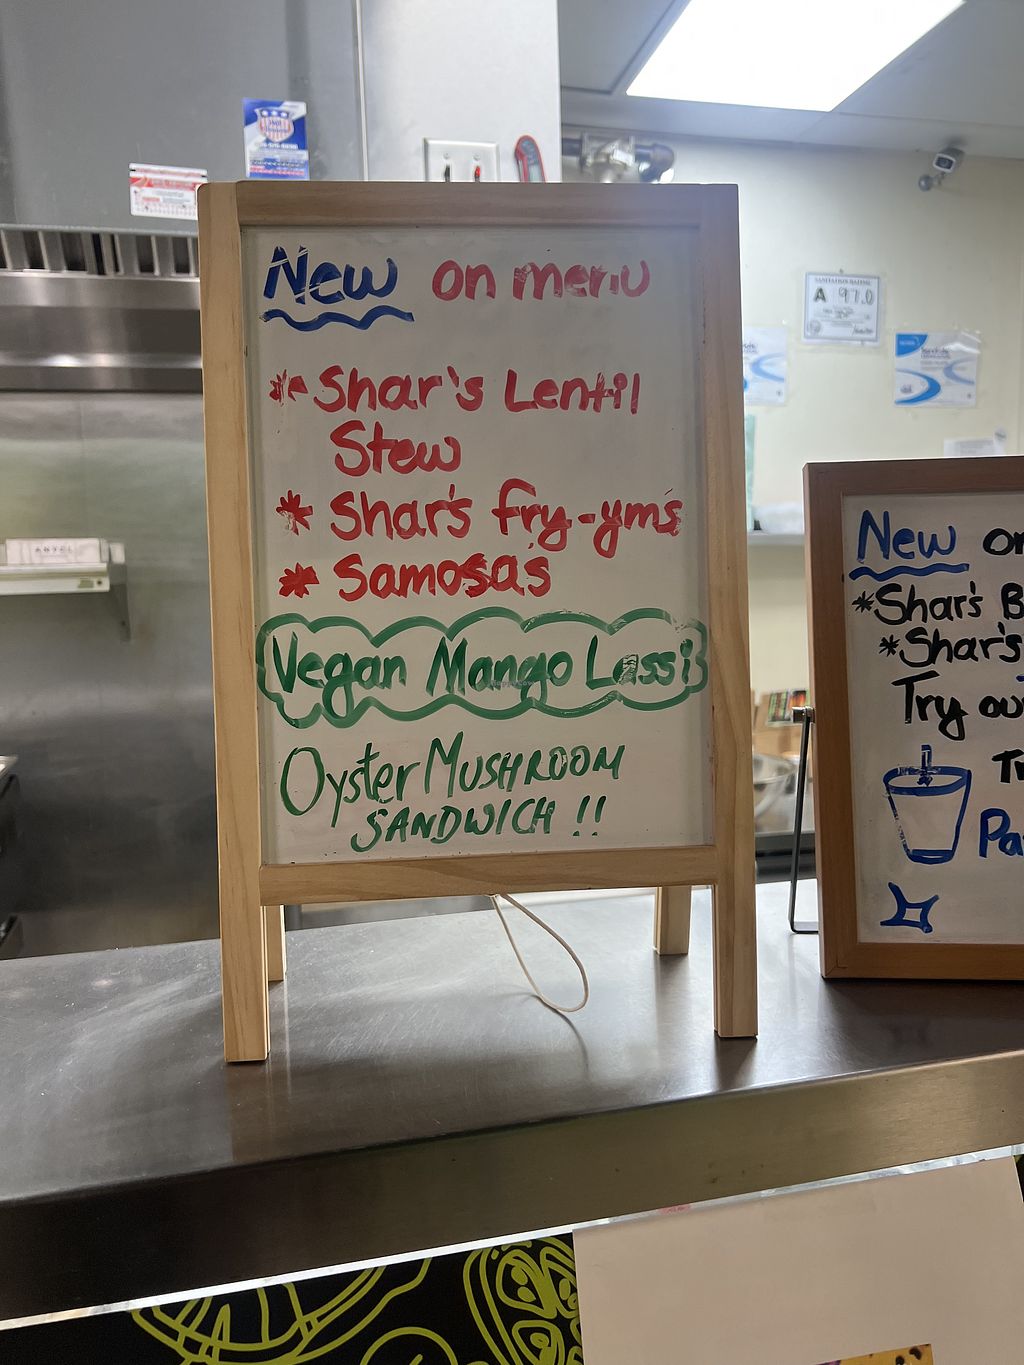 New on menu
* Shar's Lentil
Stew
* Shar's fry-yms
* Samosa's
Vegan Mango Lassi
Oyster MUSHROOM
SANDWICH !!
SANITATION RATING
A 97.0
New on
* Shar's B
* Shar's
Try ou